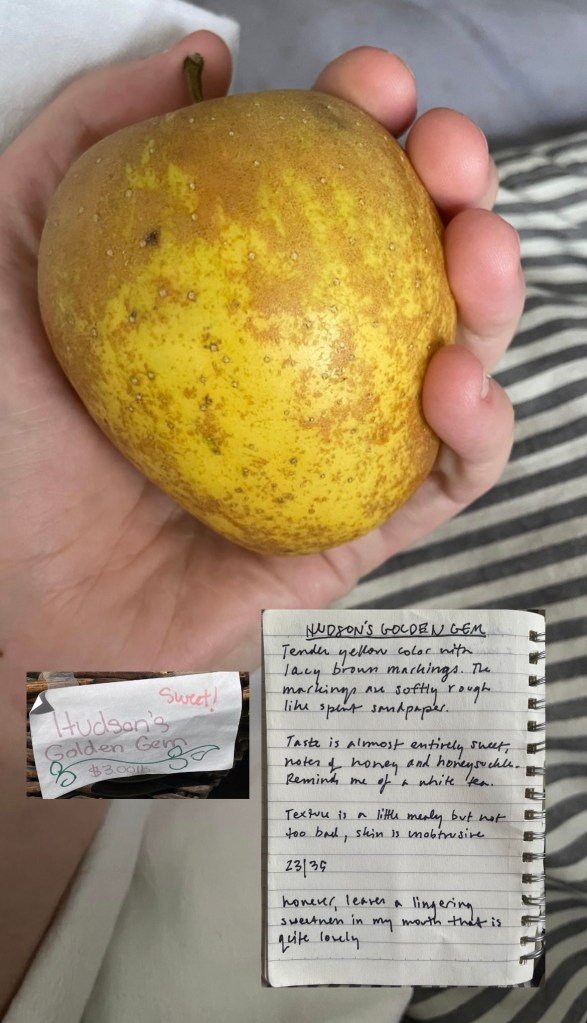 Sweet!
Hudson's
Golden Gem
$3.00 lb
HUDSON'S GOLDEN GEM
Tender yellow color with
lacy brown markings. The
markings are softly rough
like spent sandpaper.
Taste is almost entirely sweet,
notes of honey and honeysuckle.
Reminds me of a white tea.
Texture is a little mealy but not
too bad, skin is unobtrusive
23/35
however, leaves a lingering
sweetness in my mouth that is
quite lovely